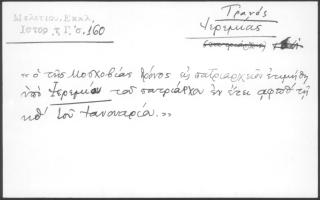 Μελετίου, Εκκλ.
Ιστορ. τ. Γ'. σ. 160
Τρανός
Ιερεμίας
«ὁ τῆς Μοσχοβίας θρόνος εἰς πατριαρχεῖον ἐτιμήθη
ὑπὸ Ἰερεμίου τοῦ πατριάρχου ἐν ἔτει αφπθ τῇ
κϛ' τοῦ Ἰανουαρίου.»